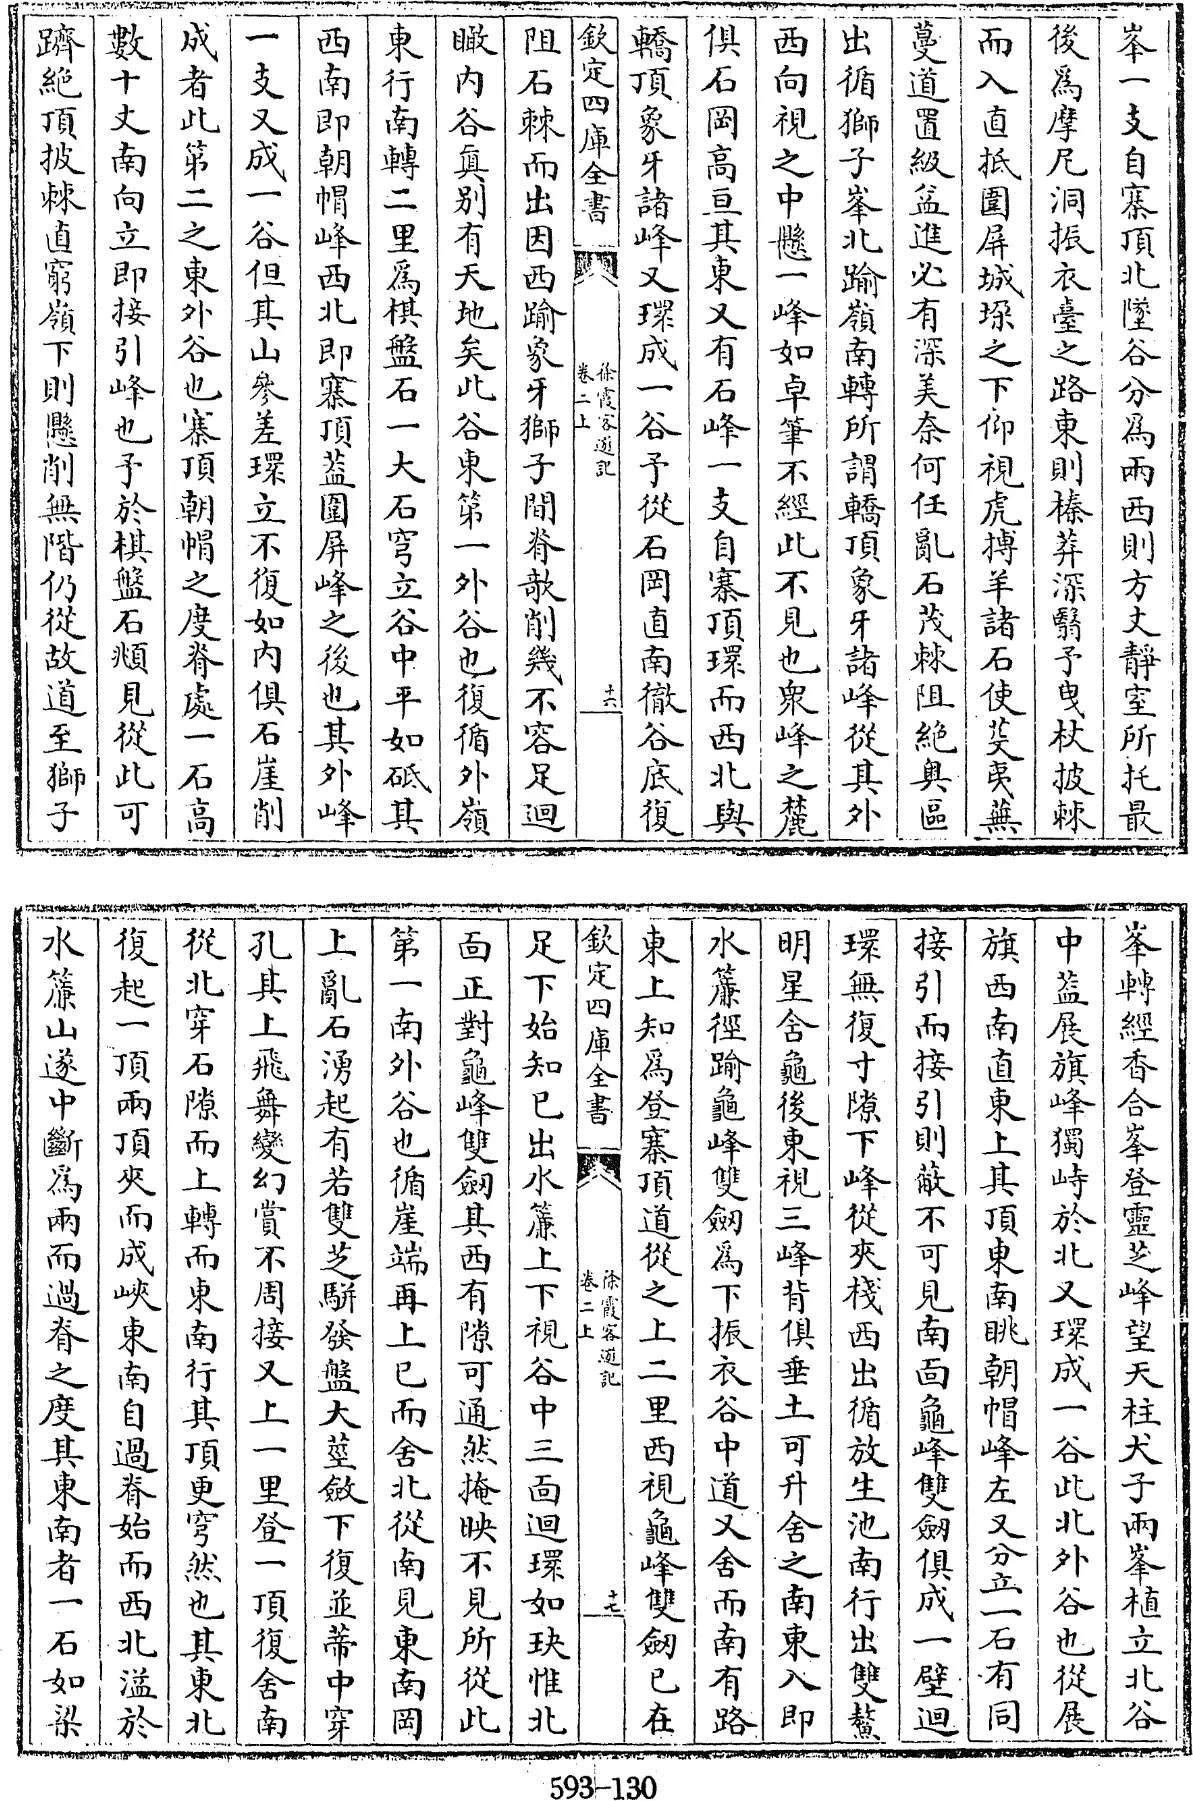 峯一支自寨頂北墜谷分爲兩西則方丈靜室所托最
後爲摩尼洞振衣臺之路東則榛莽深翳予曳杖披棘
而入直抵圍屏城垜之下仰視虎搏羊諸石使芟夷蕪
蔓道置級益進必有深美奈何任亂石茂棘阻絶奥區
出循獅子峯北踰嶺南轉所謂轎頂象牙諸峰從其外
西向視之中懸一峰如卓筆不經此不見也衆峰之麓
俱石岡高亘其東又有石峰一支自寨頂環而西北與
轎頂象牙諸峰又環成一谷予從石岡直南徹谷底復
欽定四庫全書
徐霞客遊記
卷二上
十六
阻石棘而出因西踰象牙獅子間脊欹削幾不容足迴
瞰内谷眞别有天地矣此谷東第一外谷也復循外嶺
東行南轉二里爲棋盤石一大石穹立谷中平如砥其
西南即朝帽峰西北即寨頂葢圍屏峰之後也其外峰
一支又成一谷但其山參差環立不復如内俱石崖削
成者此第二之東外谷也寨頂朝帽之度脊處一石高
數十丈南向立即接引峰也予於棋盤石頫見從此可
躋絶頂披棘直窮嶺下則懸削無階仍從故道至獅子
峯轉經香合峯登靈芝峰望天柱犬子兩峯植立北谷
中葢展旗峰獨峙於北又環成一谷此北外谷也從展
旗西南直東上其頂東南眺朝帽峰左又分立一石有同
接引而接引則蔽不可見南面龜峰雙劒俱成一壁迴
環無復寸隙下峰從夾棧西出循放生池南行出雙鰲
明星舍龜後東視三峰背俱垂土可升舍之南東入即
水簾徑踰龜峰雙劒爲下振衣谷中道又舍而南有路
東上知爲登寨頂道從之上二里西視龜峰雙劒已在
欽定四庫全書
徐霞客遊記
卷二上
十七
足下始知已出水簾上下視谷中三面迴環如玦惟北
面正對龜峰雙劒其西有隙可通然掩映不見所從此
第一南外谷也循崖端再上已而舍北從南見東南岡
上亂石湧起有若雙芝駢發盤大莖斂下復並蒂中穿
孔其上飛舞變幻賞不周接又上一里登一頂復舍南
從北穿石隙而上轉而東南行其頂更穹然也其東北
復起一頂兩頂夾而成峽東南自過脊始而西北溢於
水簾山遂中斷爲兩而過脊之度其東南者一石如梁
593-130